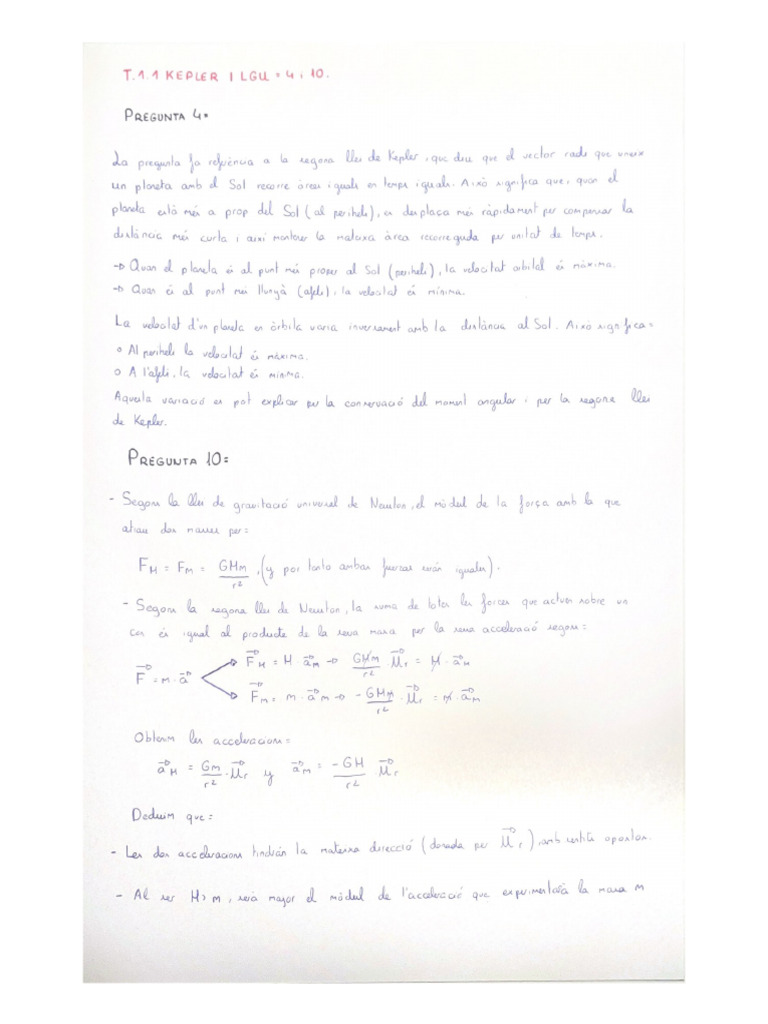 T.1.1 KEPLER I LGU = 4 i 10.
PREGUNTA 4:
La pregunta fa referència a la segona llei de Kepler, que diu que el vector radi que uneix
un planeta amb el Sol recorre àrees iguals en temps iguals. Això significa que, quan el
planeta està més a prop del Sol (al periheli), es desplaça més ràpidament per compensar la
distància més curta i així mantenir la mateixa àrea recorreguda per unitat de temps.
→ Quan el planeta és al punt més proper al Sol (periheli), la velocitat orbital és màxima.
→ Quan és al punt més llunyà (afeli), la velocitat és mínima.
La velocitat d'un planeta en òrbita varia inversament amb la distància al Sol. Això significa:
o Al periheli la velocitat és màxima.
o A l'afeli, la velocitat és mínima.
Aquesta variació es pot explicar per la conservació del moment angular i per la segona llei
de Kepler.
PREGUNTA 10:
- Segons la llei de gravitació universal de Newton, el mòdul de la força amb la que
atrau dos masses per:
F_M = F_m = GMm/r², (y por tanto ambas fuerzas serán iguales).
- Segons la segona llei de Newton, la suma de totes les forces que actuen sobre un
cos és igual al producte de la seva massa per la seva acceleració segons:
F⃗ = m · a⃗
F⃗_M = M · a⃗_M → GMm/r² · μ⃗_r = M · a⃗_M
F⃗_m = m · a⃗_m → - GMm/r² · μ⃗_r = m · a⃗_m
Obtenim les acceleracions:
a⃗_M = Gm/r² · μ⃗_r y a⃗_m = -GM/r² μ⃗_r
Deduim que:
- Les dos acceleracions tindràn la mateixa direcció (donada per μ⃗_r), amb sentits oposats.
- Al ser M > m, serà major el mòdul de l'acceleració que experimentarà la massa m